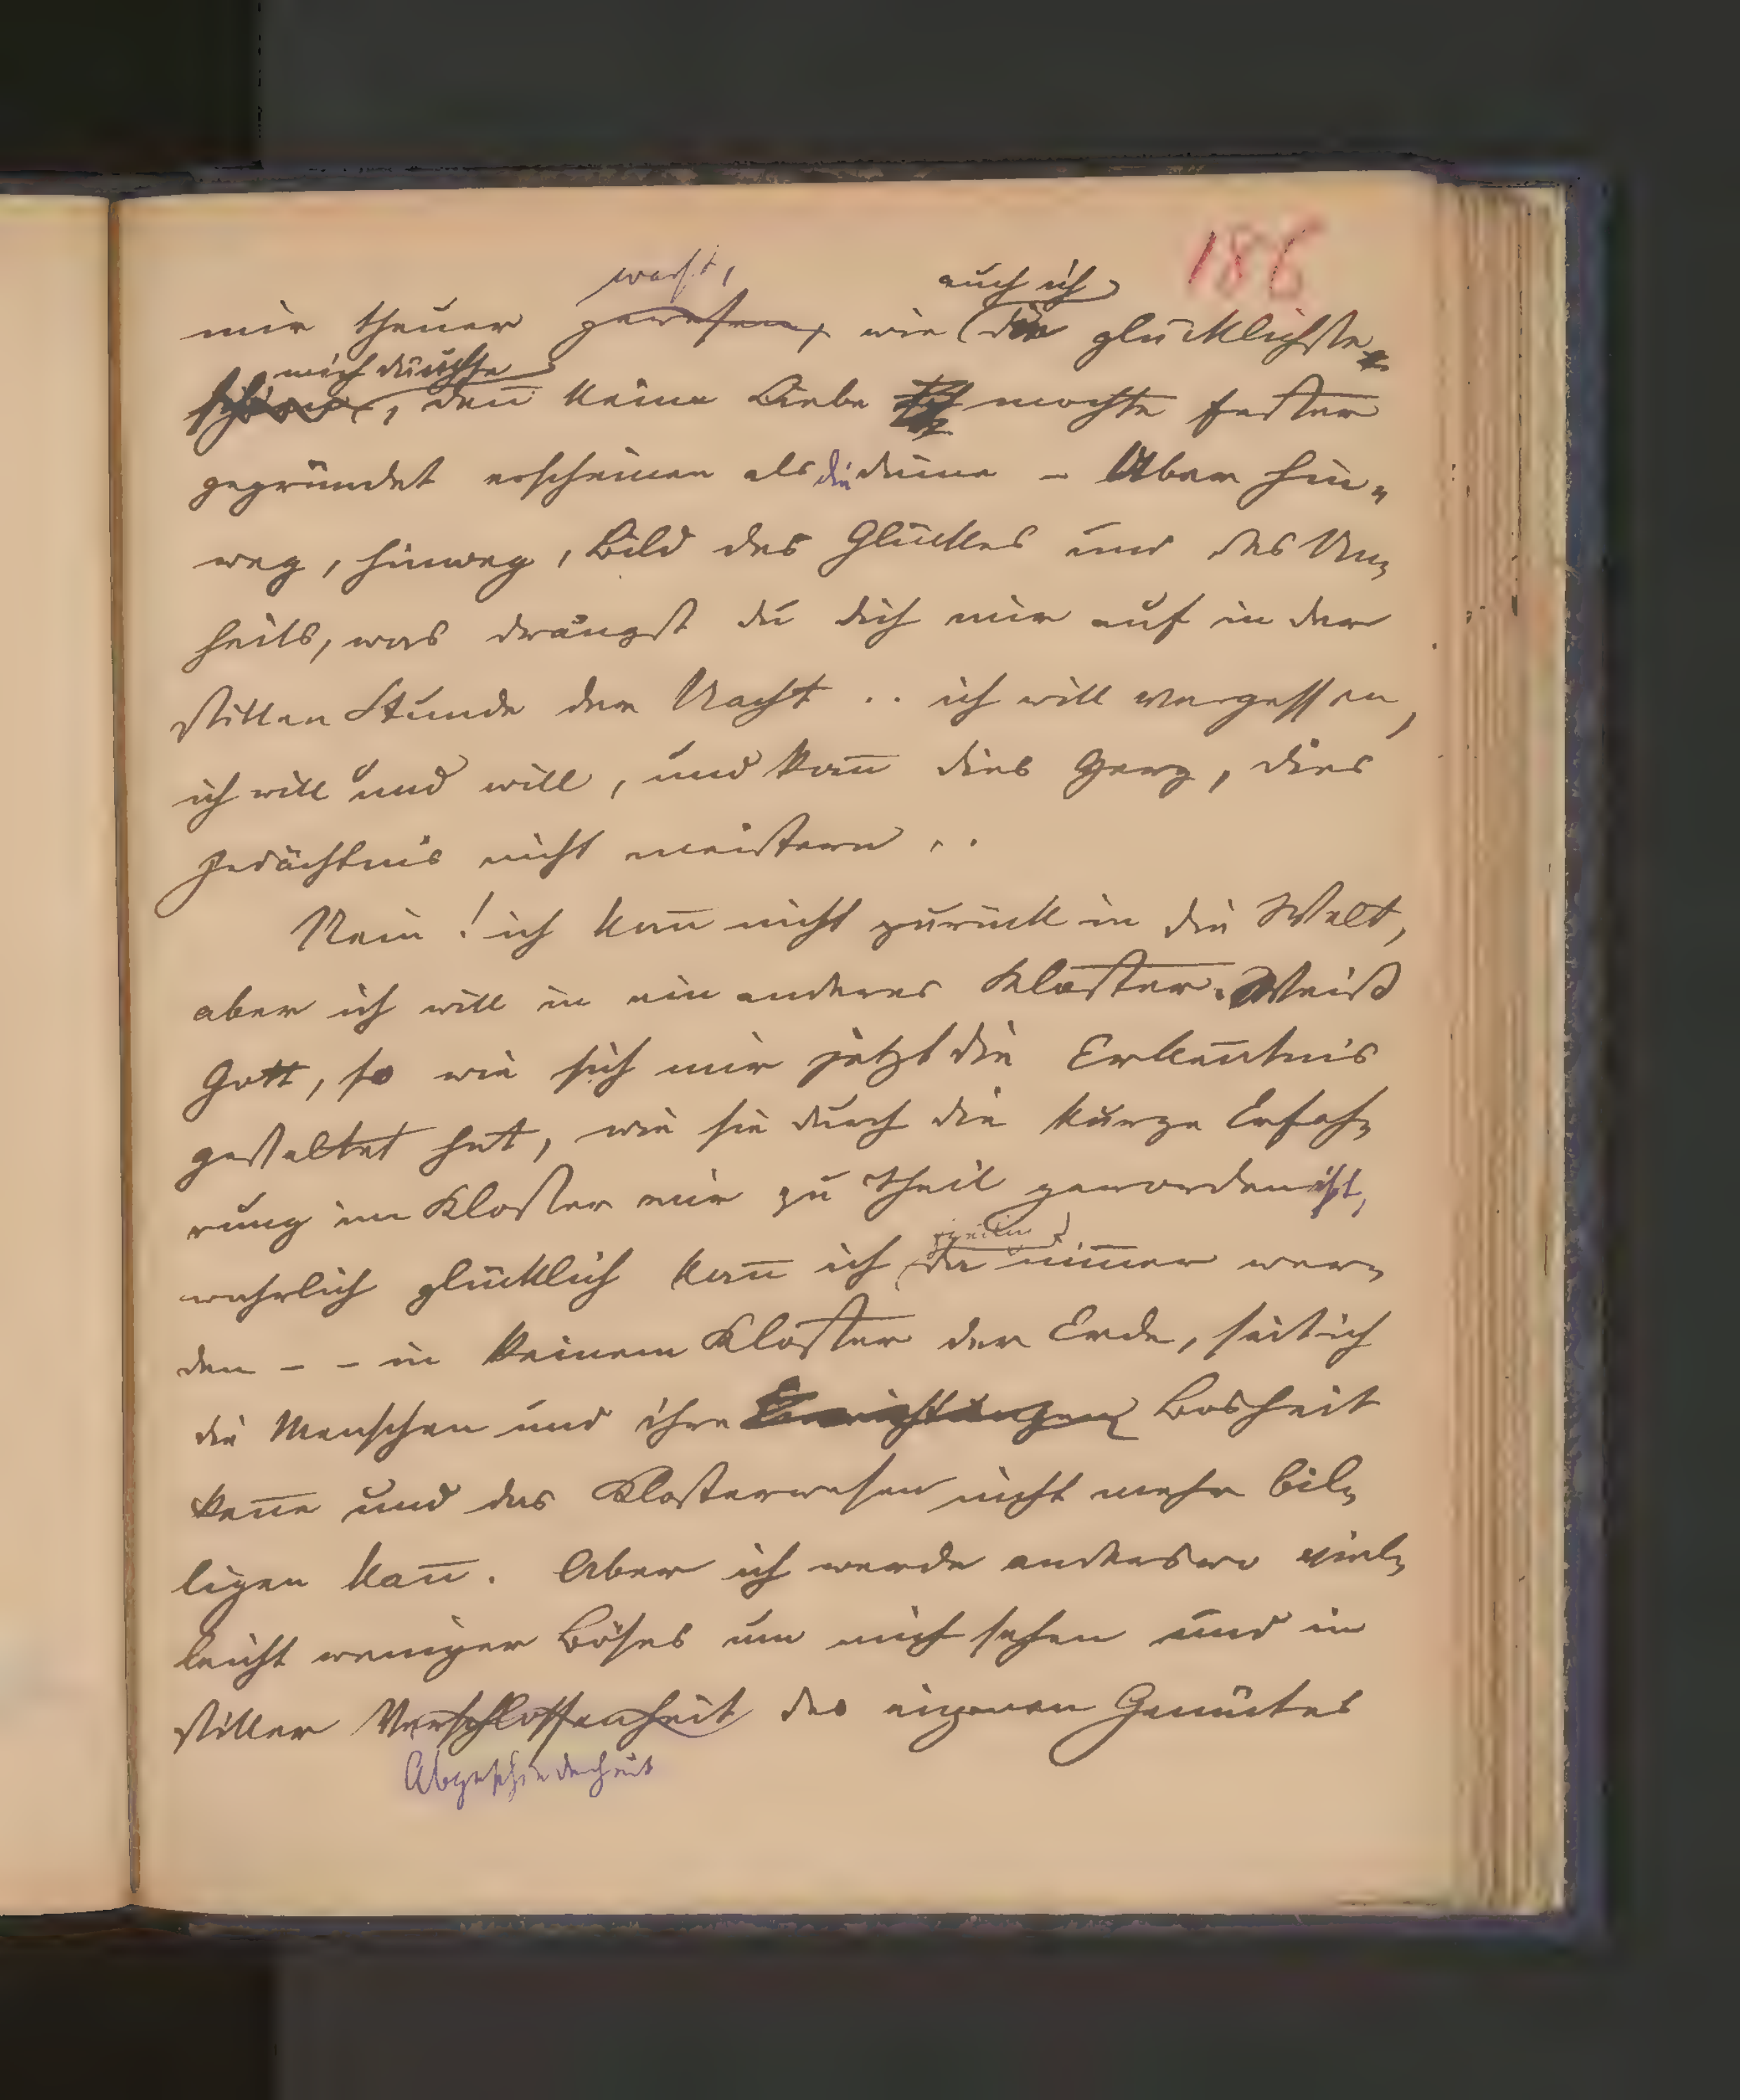 186
warst,
auch ich
mir theuer gewesen, wie die glücklichste
mich däuchte
schien, den̄ keine Liebe mochte fester
gegründet erscheinen als die deine – Aber hin-
weg, hinweg, Bild des Glückes und des Un-
heils, was drängst du dich mir auf in der
stillen Stunde der Nacht .. ich will vergessen,
ich will und will, und kan̄ dies Herz, dies
Gedächtnis nicht meistern ..
Nein! ich kan̄ nicht zurück in die Welt,
aber ich will in ein anderes Kloster. Weiß
Gott, so wie sich mir jetzt die Erken̄tnis
gestaltet hat, wie sie durch die kurze Erfah-
rung im Kloster mir zu Theil geworden ist,
wahrlich glücklich kan̄ ich da nim̄er wer-
den – – in keinem Kloster der Erde, seit ich
die Menschen und ihre Einrichtungen Bosheit
ken̄e und das Klosterwesen nicht mehr bil-
ligen kan̄. Aber ich werde anderswo viel-
leicht weniger Böses um mich sehen und in
stiller Verschlossenheit des eigenen Gemütes
Abgeschiedenheit